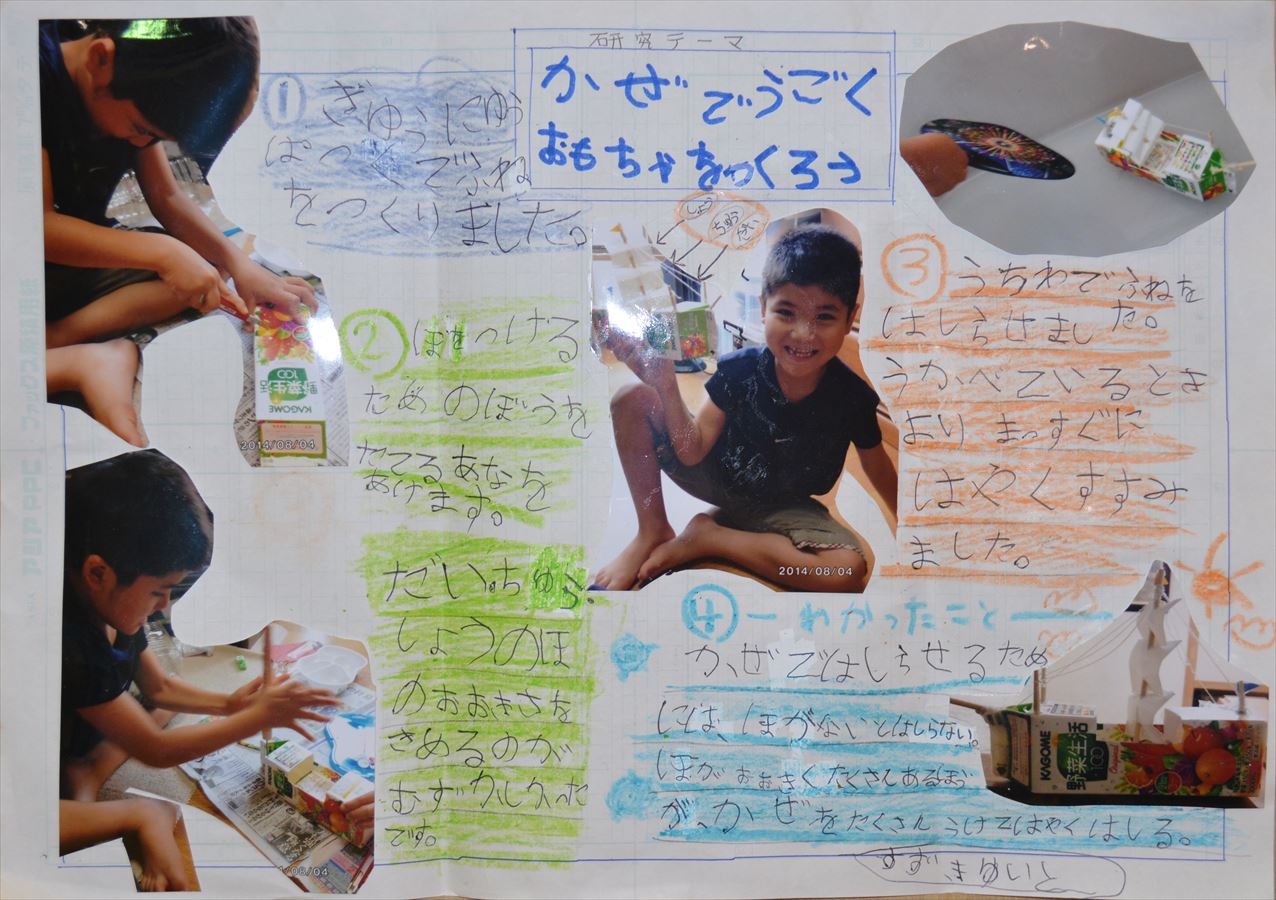 研究テーマ
かぜでうごく
おもちゃをつくろう
① ぎゅうにゅう
ぱっくでふね
をつくりました。
② ほをつける
ためのぼうを
たてるあなを
あけます。
だい。ちゅう。
しょうのほ
のおおきさを
きめるのが
むずかしかった
です。
しょう
ちゅう
だい
③ うちわでふねを
はしらせました。
うかべているとき
よりまっすぐに
はやくすすみ
ました。
④ーわかったこと
かぜではしらせるため
には、ほがないとはしらない。
ほがおおきくたくさんあるほう
が、かぜをたくさんうけてはやくはしる。
すずきゆいと
野菜生活
100
KAGOME
2014/08/04
2014/08/04
/08/04
KAGOME
野菜生活
100